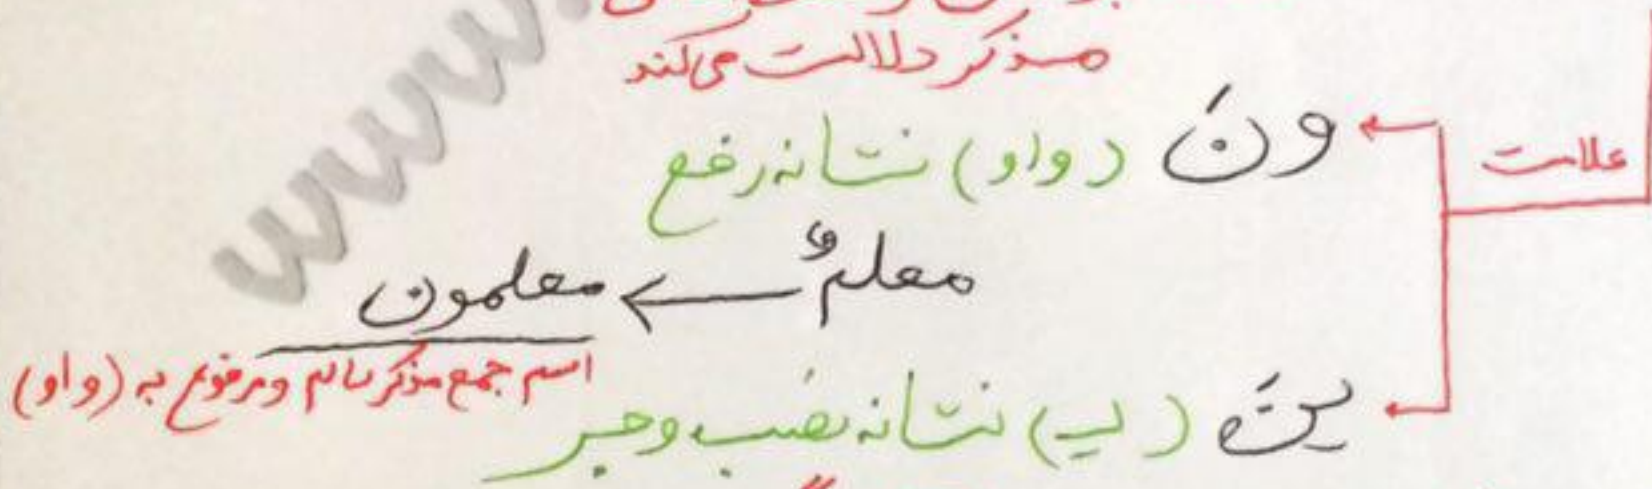 مذکر دلالت می‌کند
علامت
ونَ (واو) نشانه رفع
معلمٌ ← معلمون
اسم جمع مذکر سالم و مرفوع به (واو)
ینَ (یـ) نشانه نصب و جر
www.